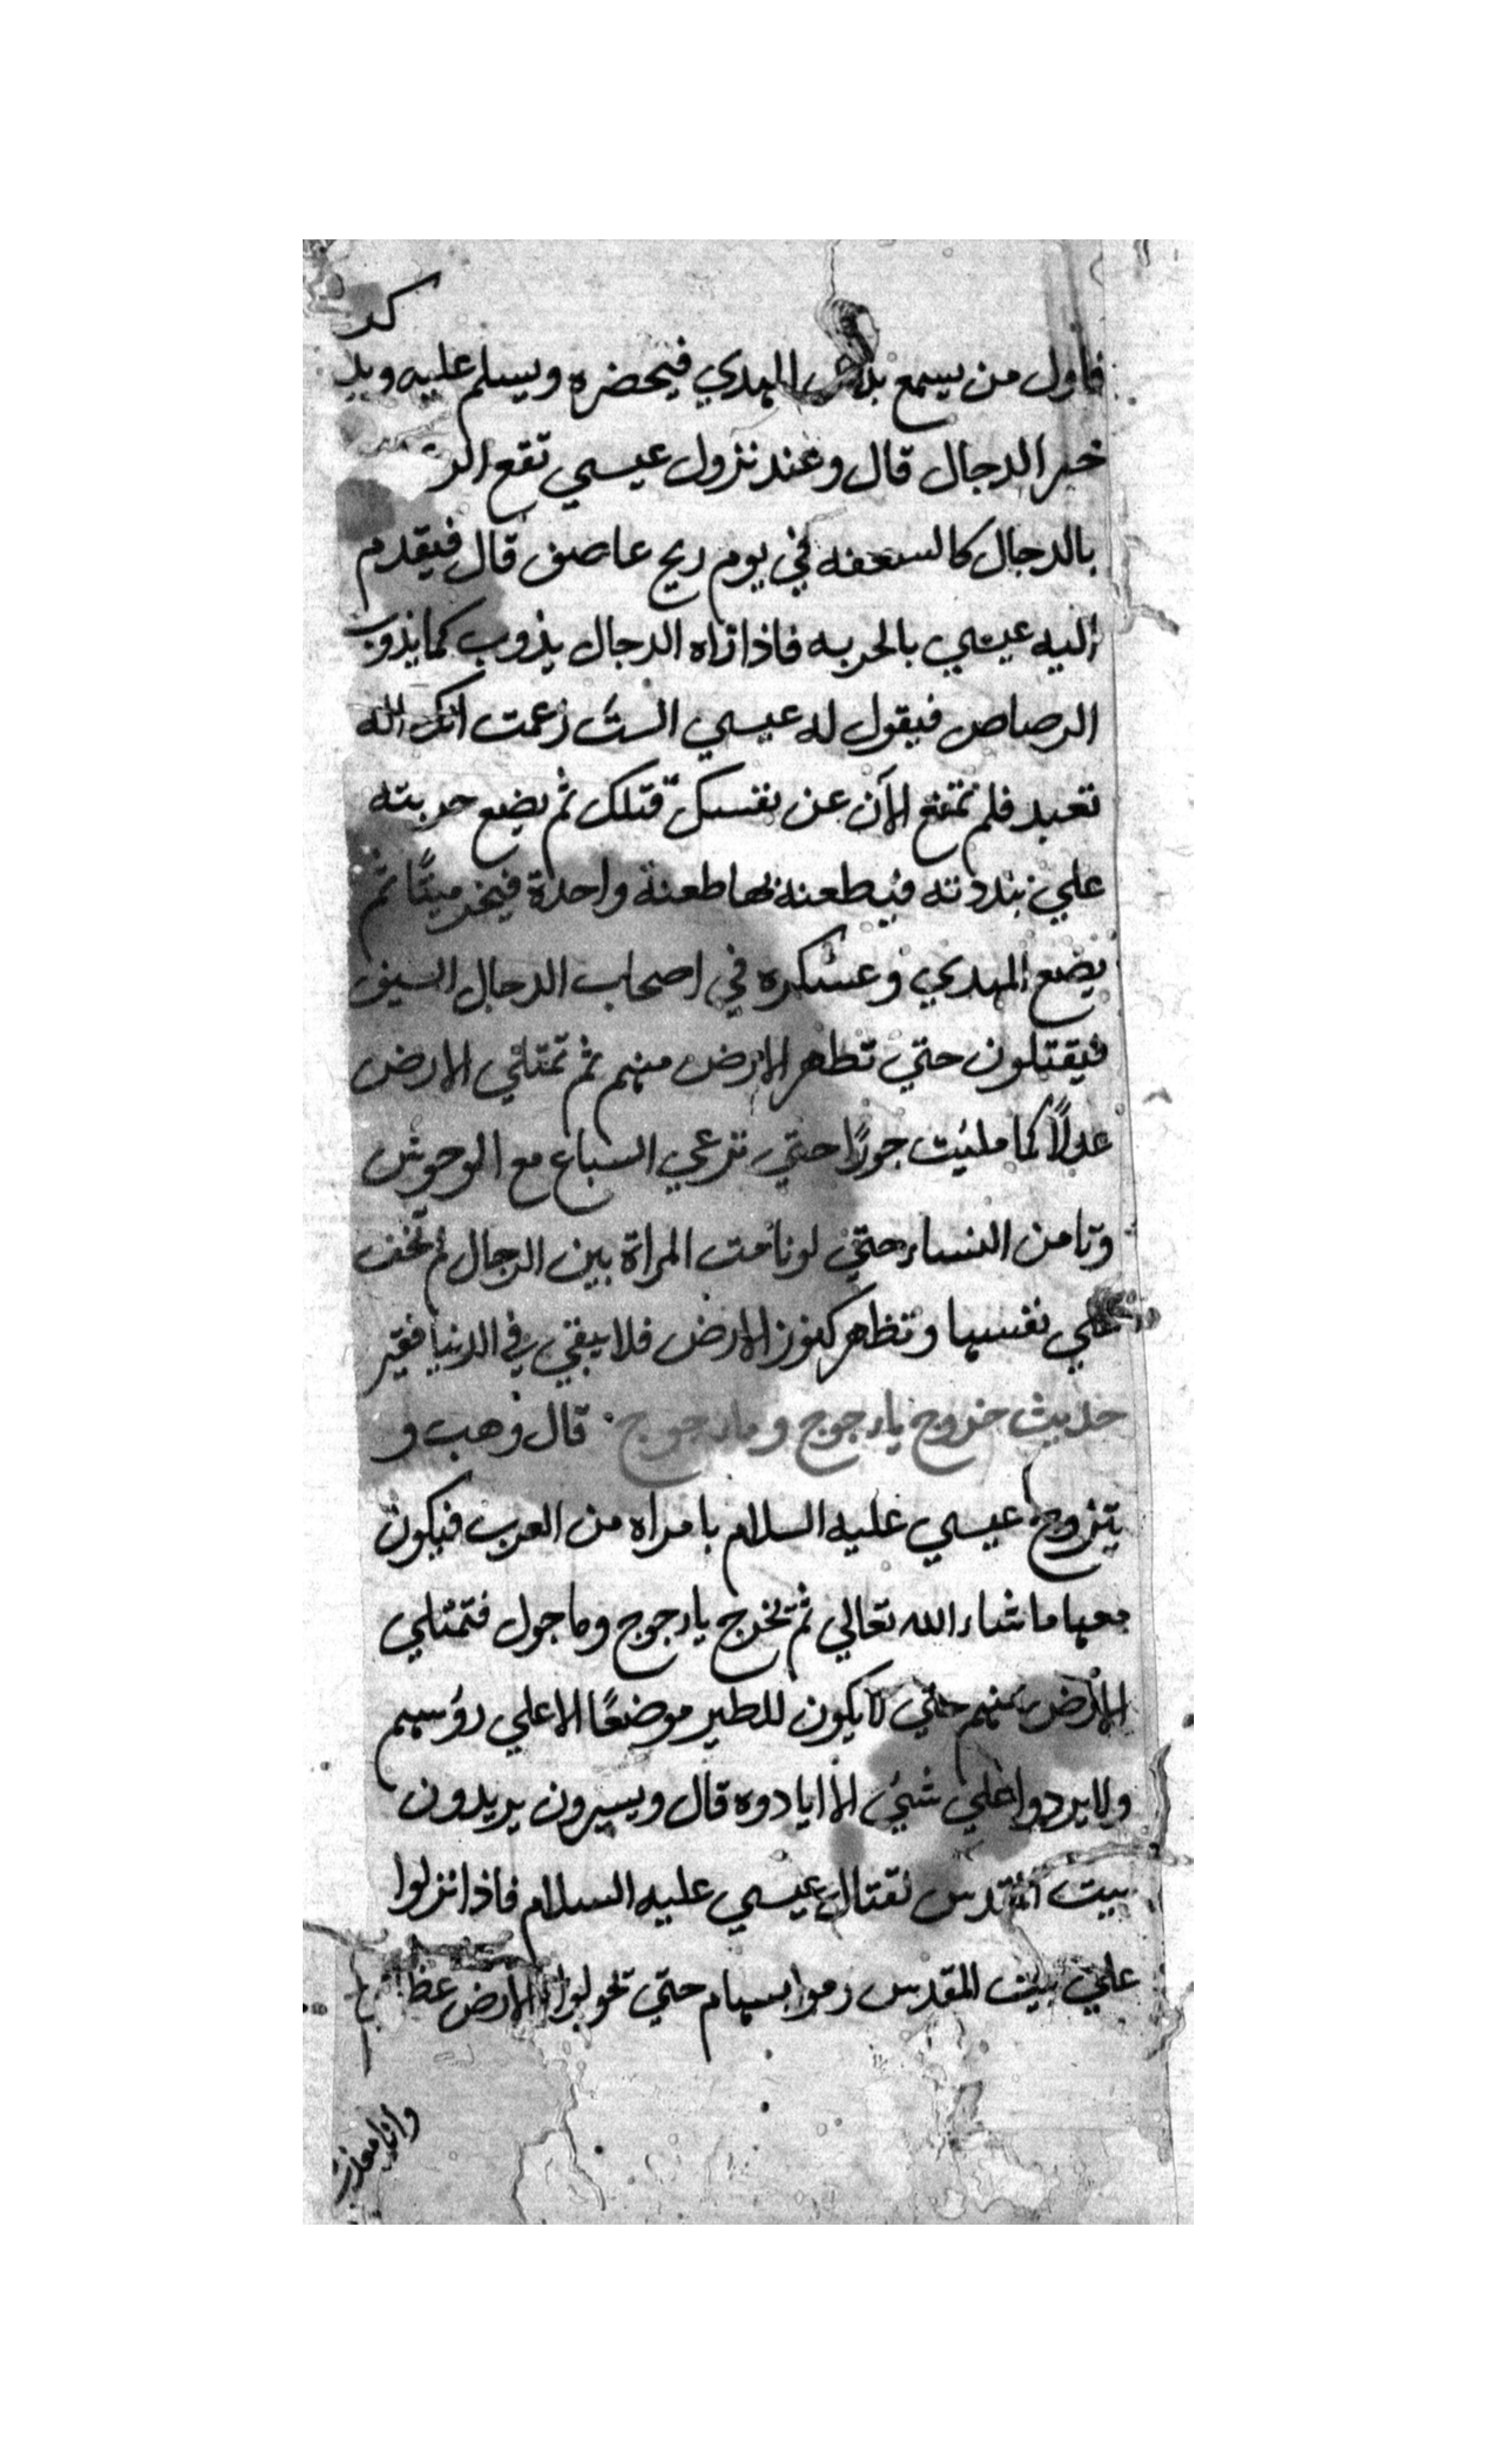 كر
فاول من يسمع المهدي فيحضره ويسلم عليه ويد
خبر الدجال قال وعند نزول عيسي تقع الر
بالدجال كالسعفه في يوم ريح عاصف قال فيقدم
اليه عيسي بالحربه فاذا راه الدجال يذوب كما يذوب
الرصاص فيقول له عيسي الست زعمت انك اله
تعبد فلم تمتنع الآن عن نفسك قتلك ثم يضع حربته
علي فيطعنه بها طعنة واحدة فيخر ميتًا ثم
يضع المهدي وعسكره في اصحاب الدجال السيف
فيقتلون حتي تطهر الارض منهم ثم تمتلي الارض
عدلًا كما مليت جورًا حتي ترعي السباع مع الوحوش
وتامن النساء حتي لو نامت المراة بين الرجال لم تخف
علي نفسها وتظهر كنوز الارض فلا يبقي في الدنيا فقير
حديث خروج ياجوج وماجوج قال وهب و
يتزوج عيسي عليه السلام بامراه من العرب فيكون
معها ما شاء الله تعالي ثم تخرج ياجوج وماجول فتمتلي
الارض منهم حتي لا يكون للطير موضعًا الا علي رؤسهم
ولا يردوا علي شيء الا ابادوه قال ويسيرون يريدون
بيت المقدس لقتال عيسي عليه السلام فاذا نزلوا
علي بيت المقدس رموا بسهام حتي الارض
وانا معذب